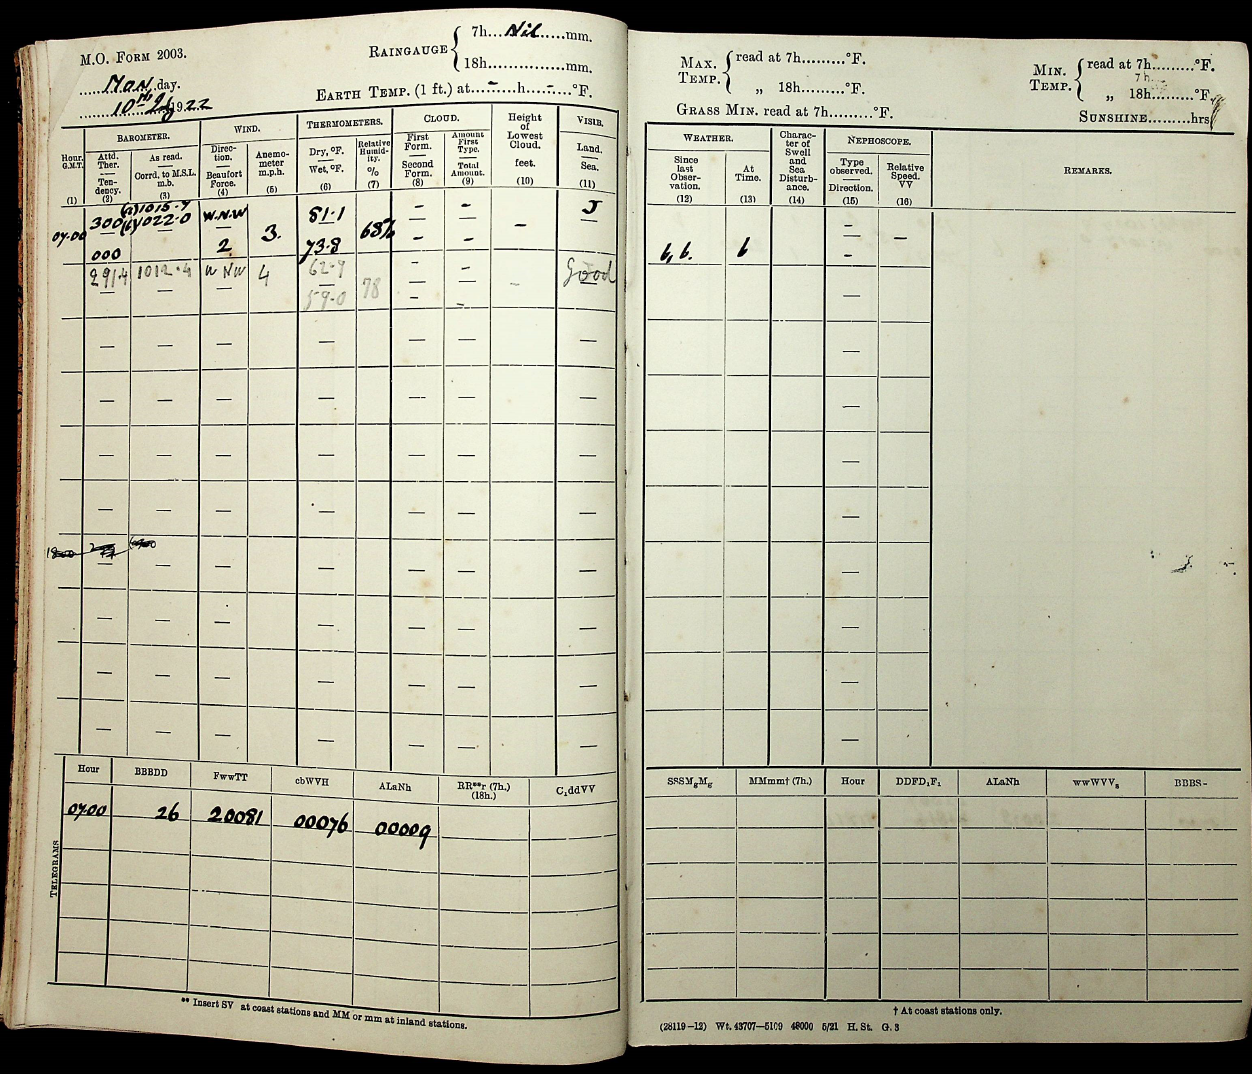 M.O. FORM 2003.
RAINGAUGE { 7h....Nil......mm.
18h...............mm.
.....Mon.day.
10th 1922
EARTH TEMP. (1 ft.) at....-....h....-....°F.
Hour. G.M.T. (1)
BAROMETER.
Attd. Ther. — Tendency. (2)
As read. — Corrd. to M.S.L. m.b. (3)
WIND.
Direction. — Beaufort Force. (4)
Anemometer m.p.h. (5)
THERMOMETERS.
Dry, °F. — Wet, °F. (6)
Relative Humidity. % (7)
CLOUD.
First Form. — Second Form. (8)
Amount First Type. — Total Amount. (9)
Height of Lowest Cloud. feet. (10)
VISIB. Land. — Sea. (11)
07.00 300 (a) 1015.9 (b) 1022.0 W.N.W 3. 81.1 68% - - - J
000 2 73.8 - -
291.4 1012.4 W NW 4 62.9 78 - - - Good
59.0 - -
Hour BBBDD FwwTT cbWVH ALaNh RR**r (7h.) (18h.) C₁ddVV
0700 26 20081 00076 00009
TELEGRAMS
** Insert SV at coast stations and MM or mm at inland stations.
MAX. TEMP. { read at 7h..........°F.
„ 18h..........°F.
MIN. TEMP. { read at 7h..........°F.
7h
„ 18h..........°F.
GRASS MIN. read at 7h..........°F.
SUNSHINE..........hrs
WEATHER.
Since last Observation. (12)
At Time. (13)
Character of Swell and Sea Disturbance. (14)
NEPHOSCOPE.
Type observed. — Direction. (15)
Relative Speed. VV (16)
REMARKS.
b, b. b - - -
SSSMgMg MMmm† (7h.) Hour DDFD₁F₁ ALaNh wwWVVs BBBS-
† At coast stations only.
(28119-12) Wt. 43707-5109 48000 5/21 H. St. G. 3